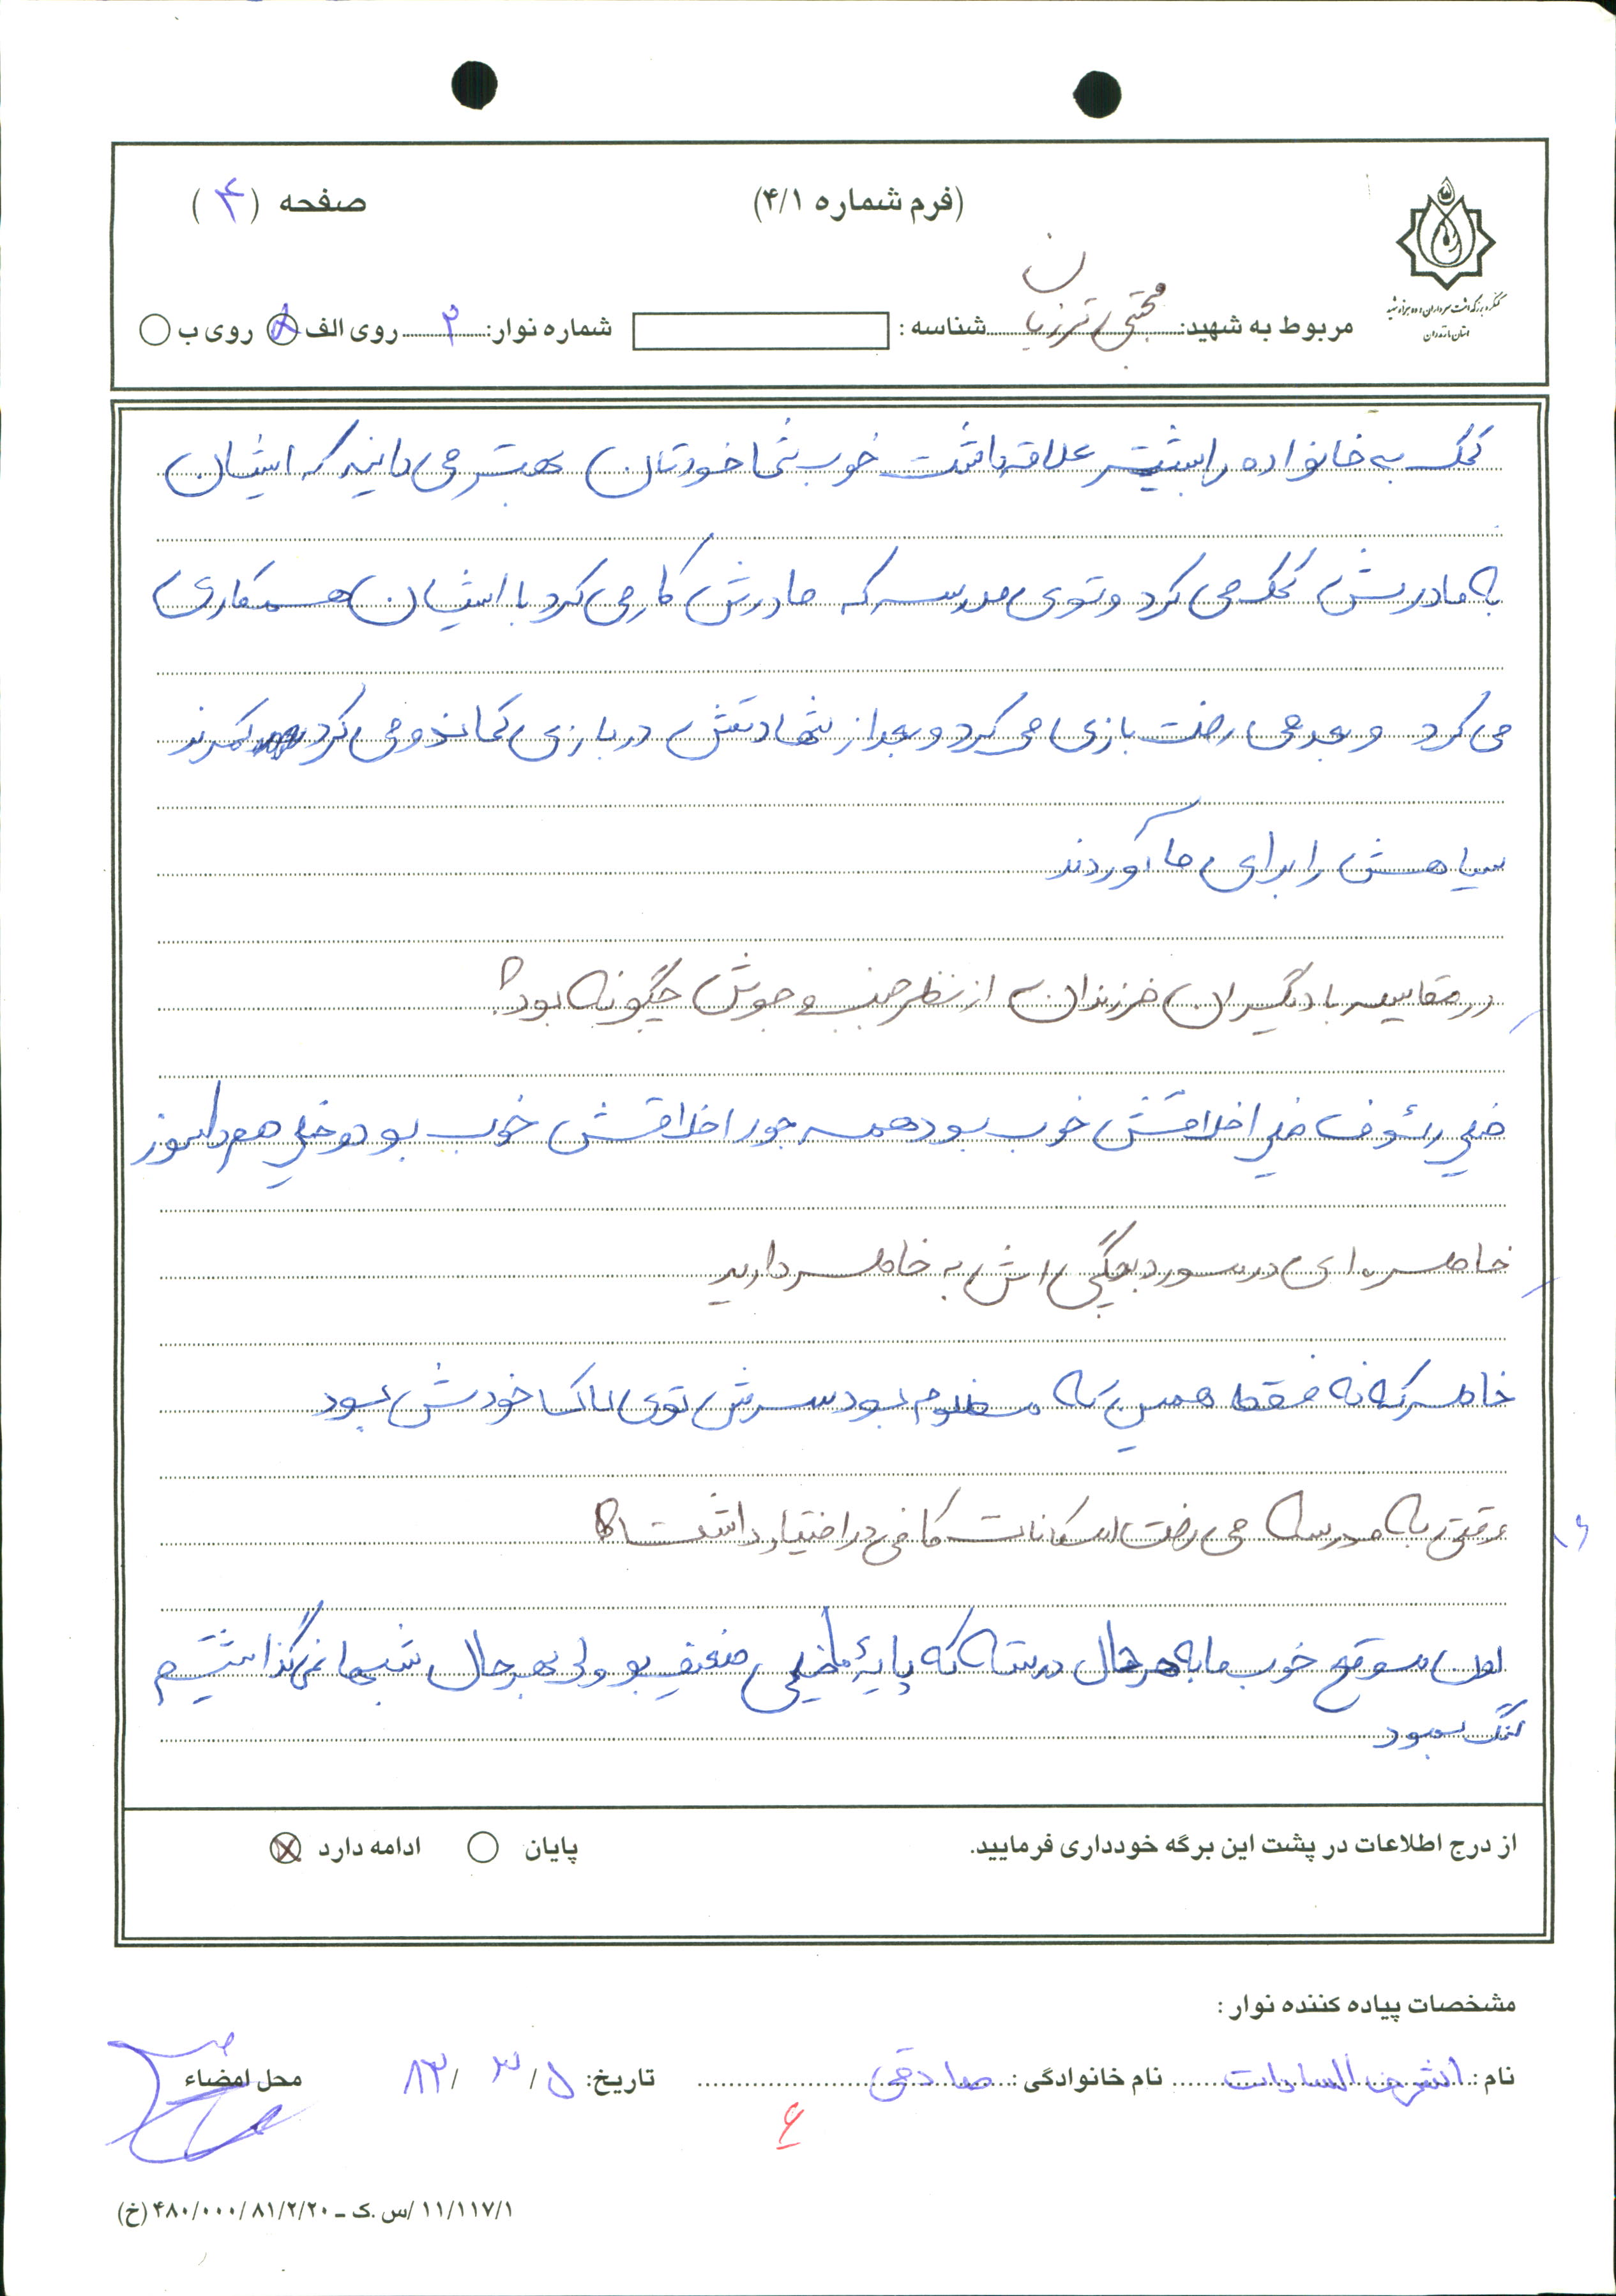 (فرم شماره ۴/۱)
صفحه (۴)
کنگره بزرگداشت سرداران و ده هزار شهید
استان مازندران
مربوط به شهید: مجتبی شناسه: شماره نوار: ۲ روی الف روی ب
کمک به خانواده را بیشتر علاقه داشت خوب شما خودتان بهتر می دانید که ایشان
به مادرش کمک می کرد و توی مدرسه که مادرش کار می کرد با ایشان همکاری
می کرد و بعد می رفت بازی می کرد و بعد از شهادتش در بازی کماندو می کرد کمربند
سیاهش را برای ما آوردند
در مقایسه با دیگران فرزندان از نظر جنب و جوش چگونه بود؟
خیلی رئوف خیلی اخلاقش خوب بود همه جور اخلاقش خوب بود و خیلی هم دلسوز
خاطره ای در مورد بچگی اش به خاطر دارید
خاطره که نه فقط همین که مظلوم بود سرش توی لاک خودش بود
وقتی به مدرسه می رفت امکانات کافی در اختیار داشت
اون موقع خوب ما به هر حال درسته که پایه ما خیلی ضعیف بو ولی بهرحال شبها نمی گذاشتیم
لنگ بمبود
از درج اطلاعات در پشت این برگه خودداری فرمایید.
پایان ادامه دارد
مشخصات پیاده کننده نوار:
نام: اشرف السادات نام خانوادگی: صادقی تاریخ: ۵/ ۳ /۸۳ محل امضاء
۶
۱۱/۱۱۷/۱ /س.ک – ۴۸۰/۰۰۰/۸۱/۲/۲۰ (خ)